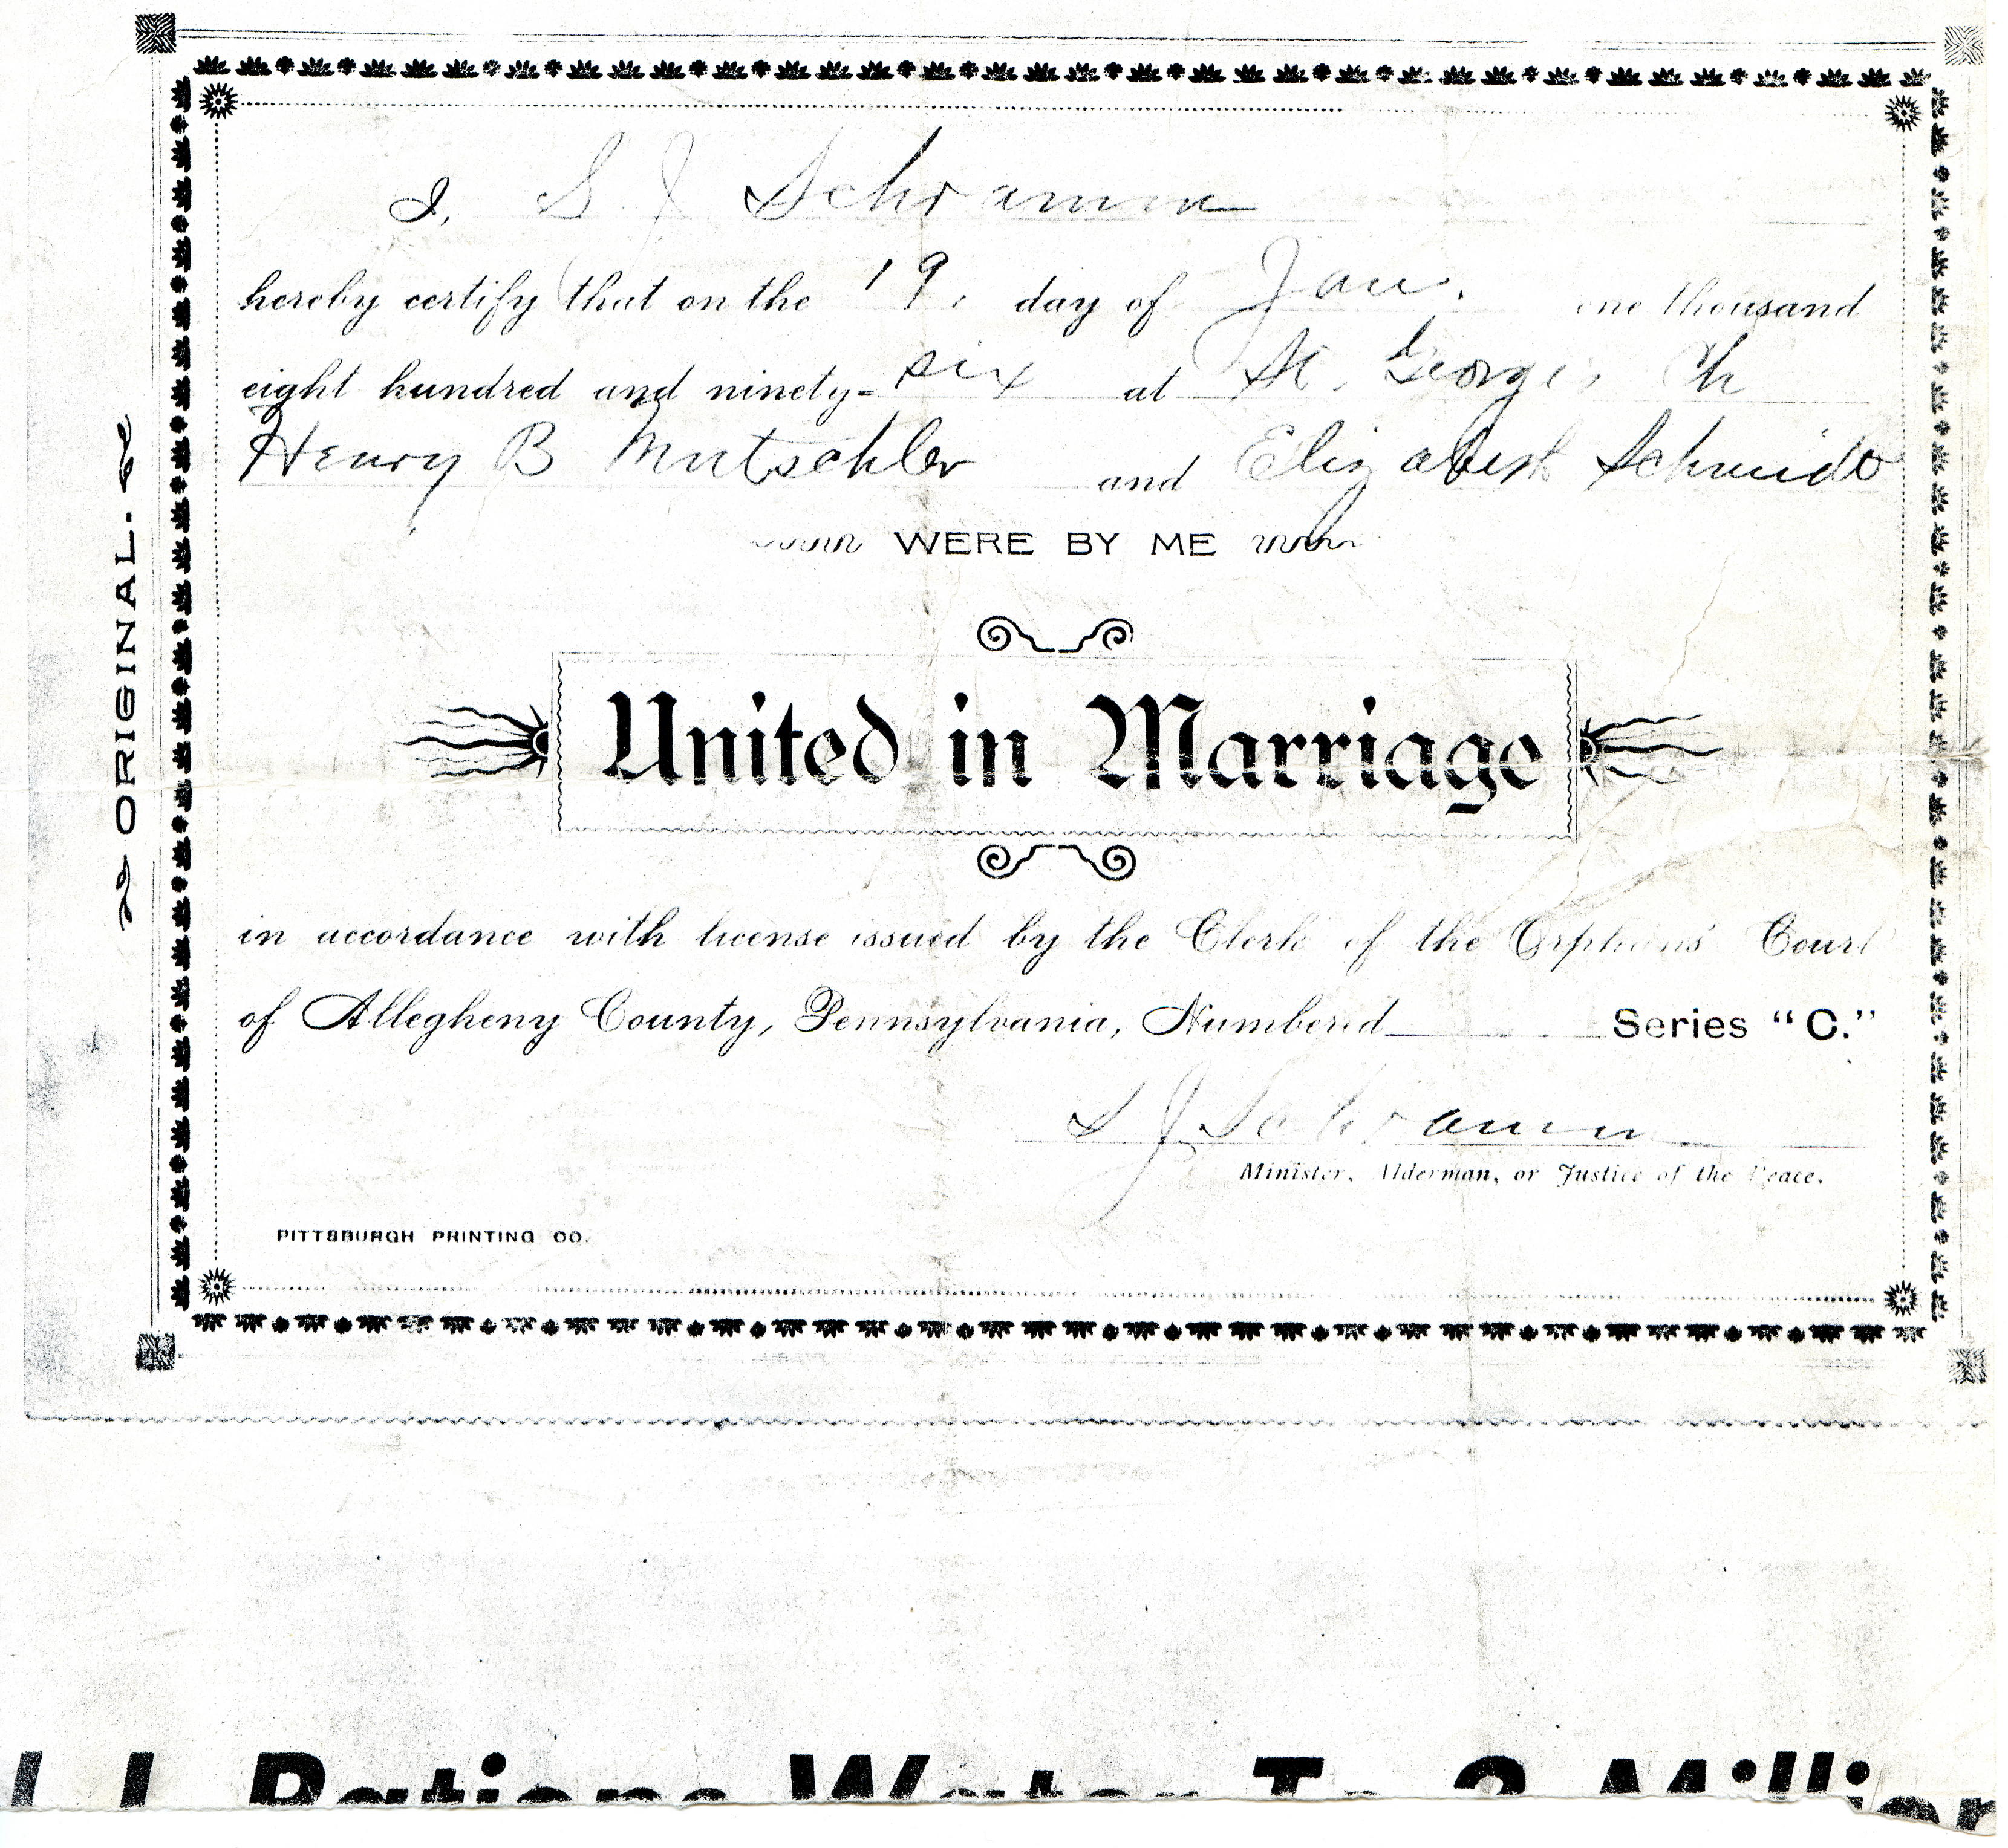 I, S J Schramm
hereby certify that on the 19, day of Jan. one thousand
eight hundred and ninety-six at St. Georges Ch
Henry B Mutschler and Elizabeth Schmidt
WERE BY ME
United in Marriage
in accordance with license issued by the Clerk of the Orphans' Court
of Allegheny County, Pennsylvania, Numbered Series "C."
S J Schramm
Minister, Alderman, or Justice of the Peace.
PITTSBURGH PRINTING CO.
ORIGINAL.
Rations Water To 2 Million